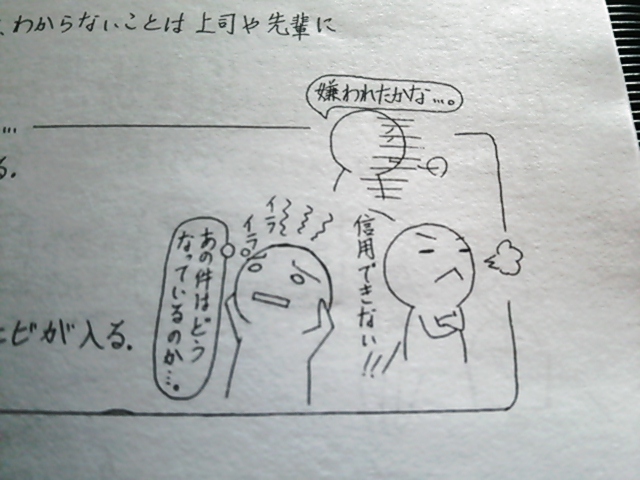 、わからないことは上司や先輩に
嫌われたかな…。
…
る。
イライラ
あの件はどう
なっているのか…。
信用できない!!
ヒビが入る。